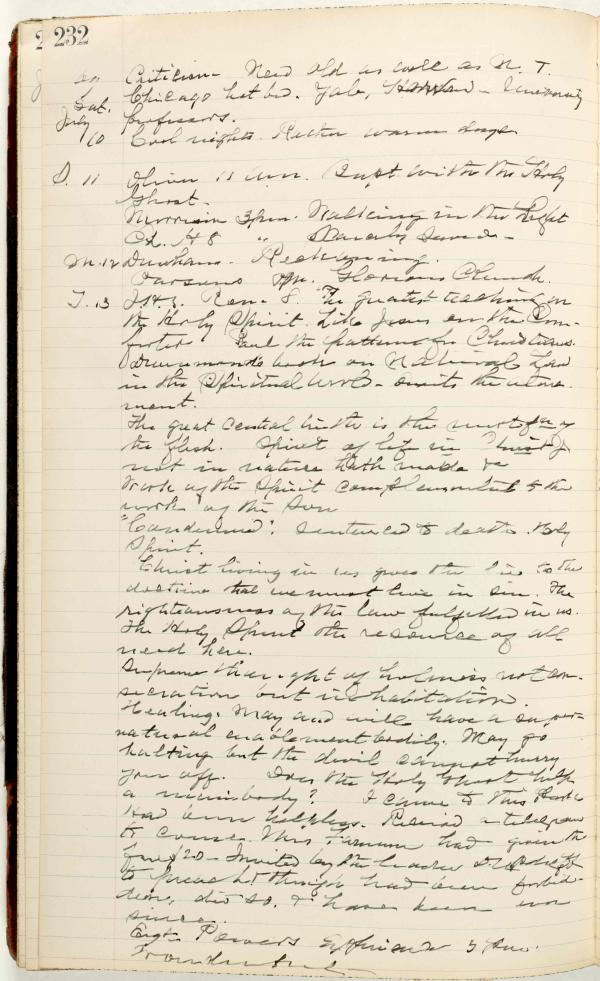 232
Criticism - Need old as well as N. T.
Sat. Chicago hot bed. Yale, Harvard - University
July professors.
10 Cool nights. Rather warm days.
S. 11 Oliver 11 a.m. Bapt. with the Holy
Ghost.
Morrison 3 p.m. Walking in the Light
8 " Scarcely Saved -
M. 12 Dunham. Reckoning.
Parsons Glorious Church.
T. 13 Rom. 8. The greatest teaching on
the Holy Spirit. Like Jesus on the Com-
forter Paul the pattern for Christians.
Drummond's book on Natural Law
in the Spiritual World - omits the atone-
ment.
The great central truth is the
the flesh. Spirit of life in Christ J.
not in nature hath made &c
Work of the Spirit complemental to the
work of the Son
"Condemned". Sentenced to death. Holy
Spirit.
Christ living in us gives the lie to the
doctrine that we must live in sin. The
righteousness of the law fulfilled in us.
The Holy Spirit the resource of all
need here.
Supreme thought of holiness not con-
secration but inhabitation.
Healing. May and will have a super-
natural enablement bodily. May go
halting but the devil cannot hurry
you off. Does the Holy Ghost help
a man's body? I came to this
Had been helpless. Received a telegram
to come. Mrs. had given the
$20 - Invited by the leader
to preach & though had been forbid-
den, did so, & have been
since.
Capt. Powers 5 p.m.